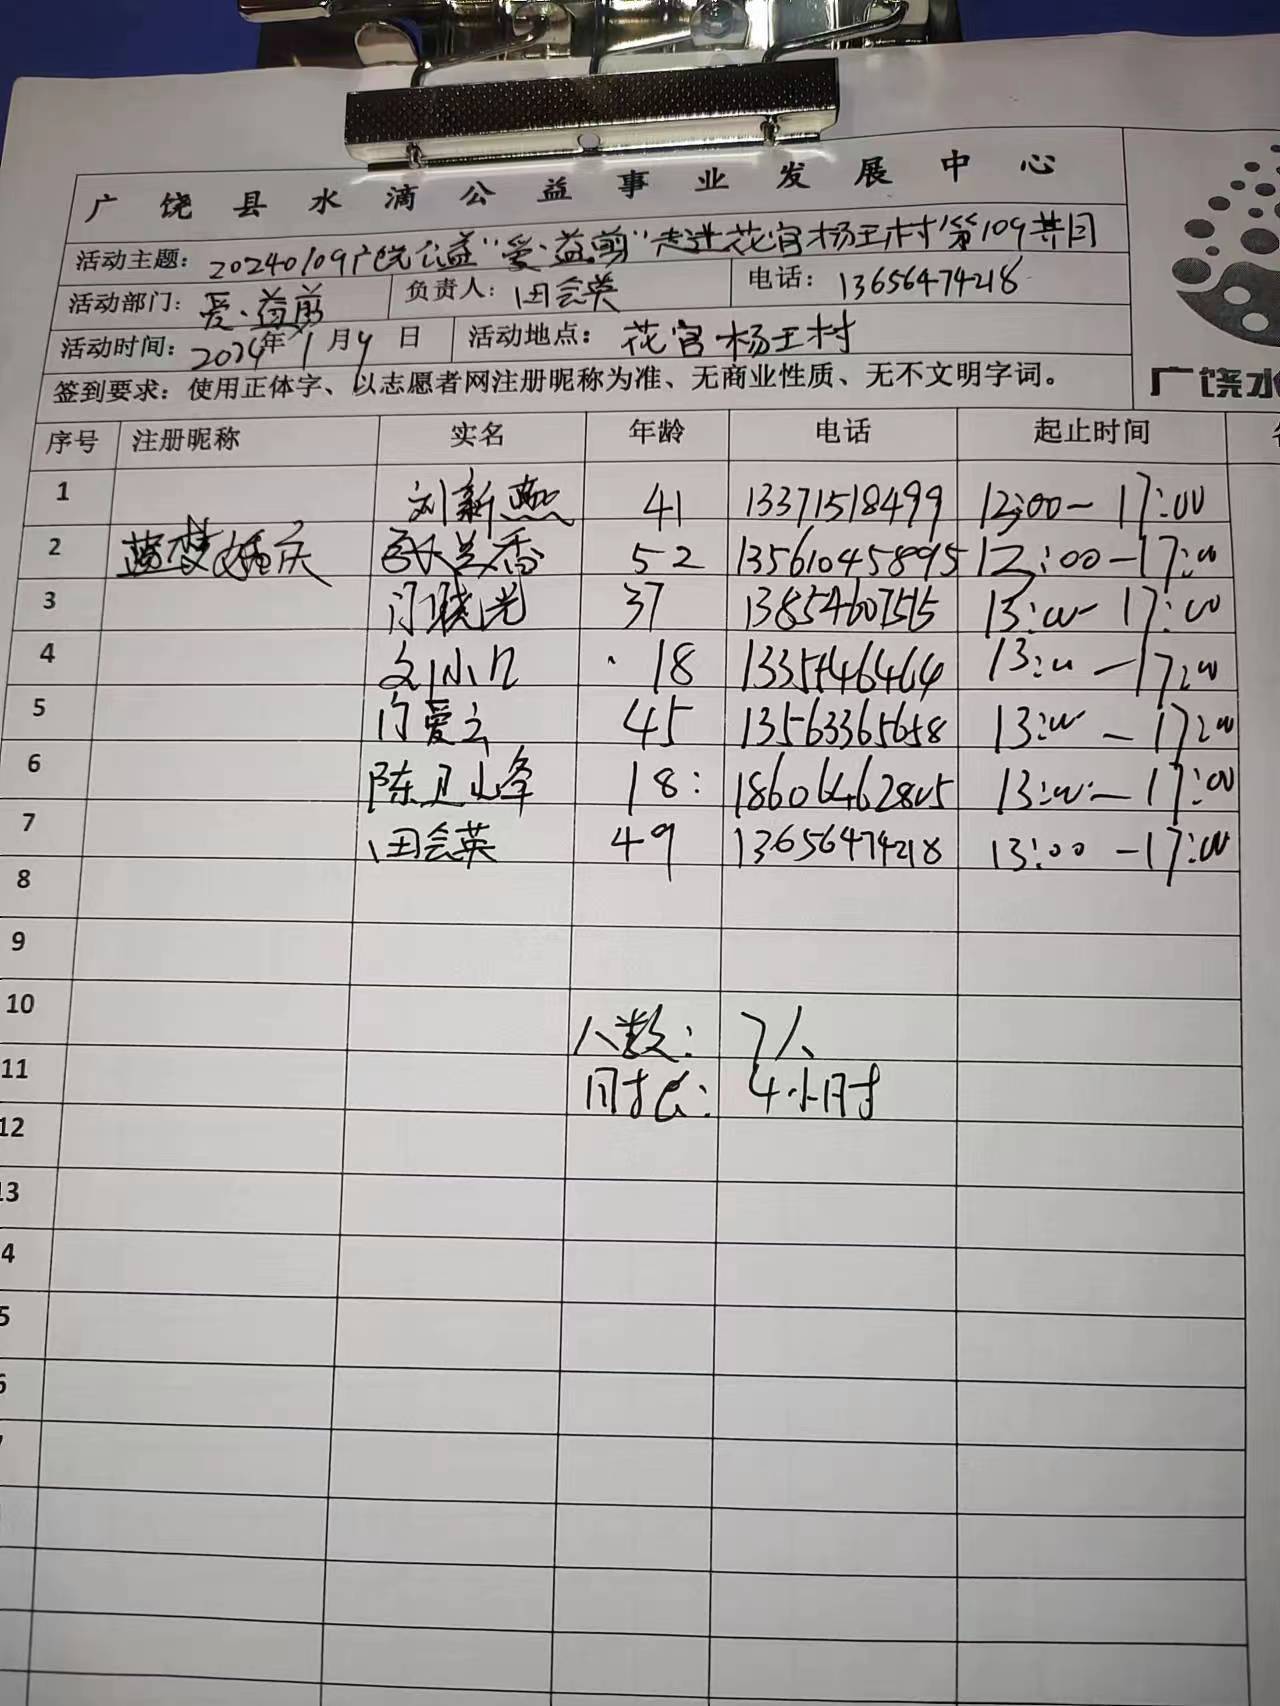 广饶县水滴公益事业发展中心
活动主题：20240109广饶公益“爱·益剪”走进花官杨王村第109共同
活动部门：爱·益剪 负责人：田会英 电话：13656474218
活动时间：2024年1月9日 活动地点：花官杨王村
签到要求：使用正体字、以志愿者网注册昵称为准、无商业性质、无不文明字词。
广饶水
序号 注册昵称 实名 年龄 电话 起止时间
1 刘新燕 41 13371518499 12:00-17:00
2 蓝梦婚庆 兰香 52 13561045895 12:00-17:00
3 门晓光 37 13854607515 13:00-17:00
4 刘小几 18 13:00-17:00
5 门爱云 45 13563365658 13:00-17:00
6 陈卫峰 18: 18606462805 13:00-17:00
7 田会英 49 13656474218 13:00-17:00
8
9
10 人数： 7人
11 时长： 4小时
12
13
4
5
6
7